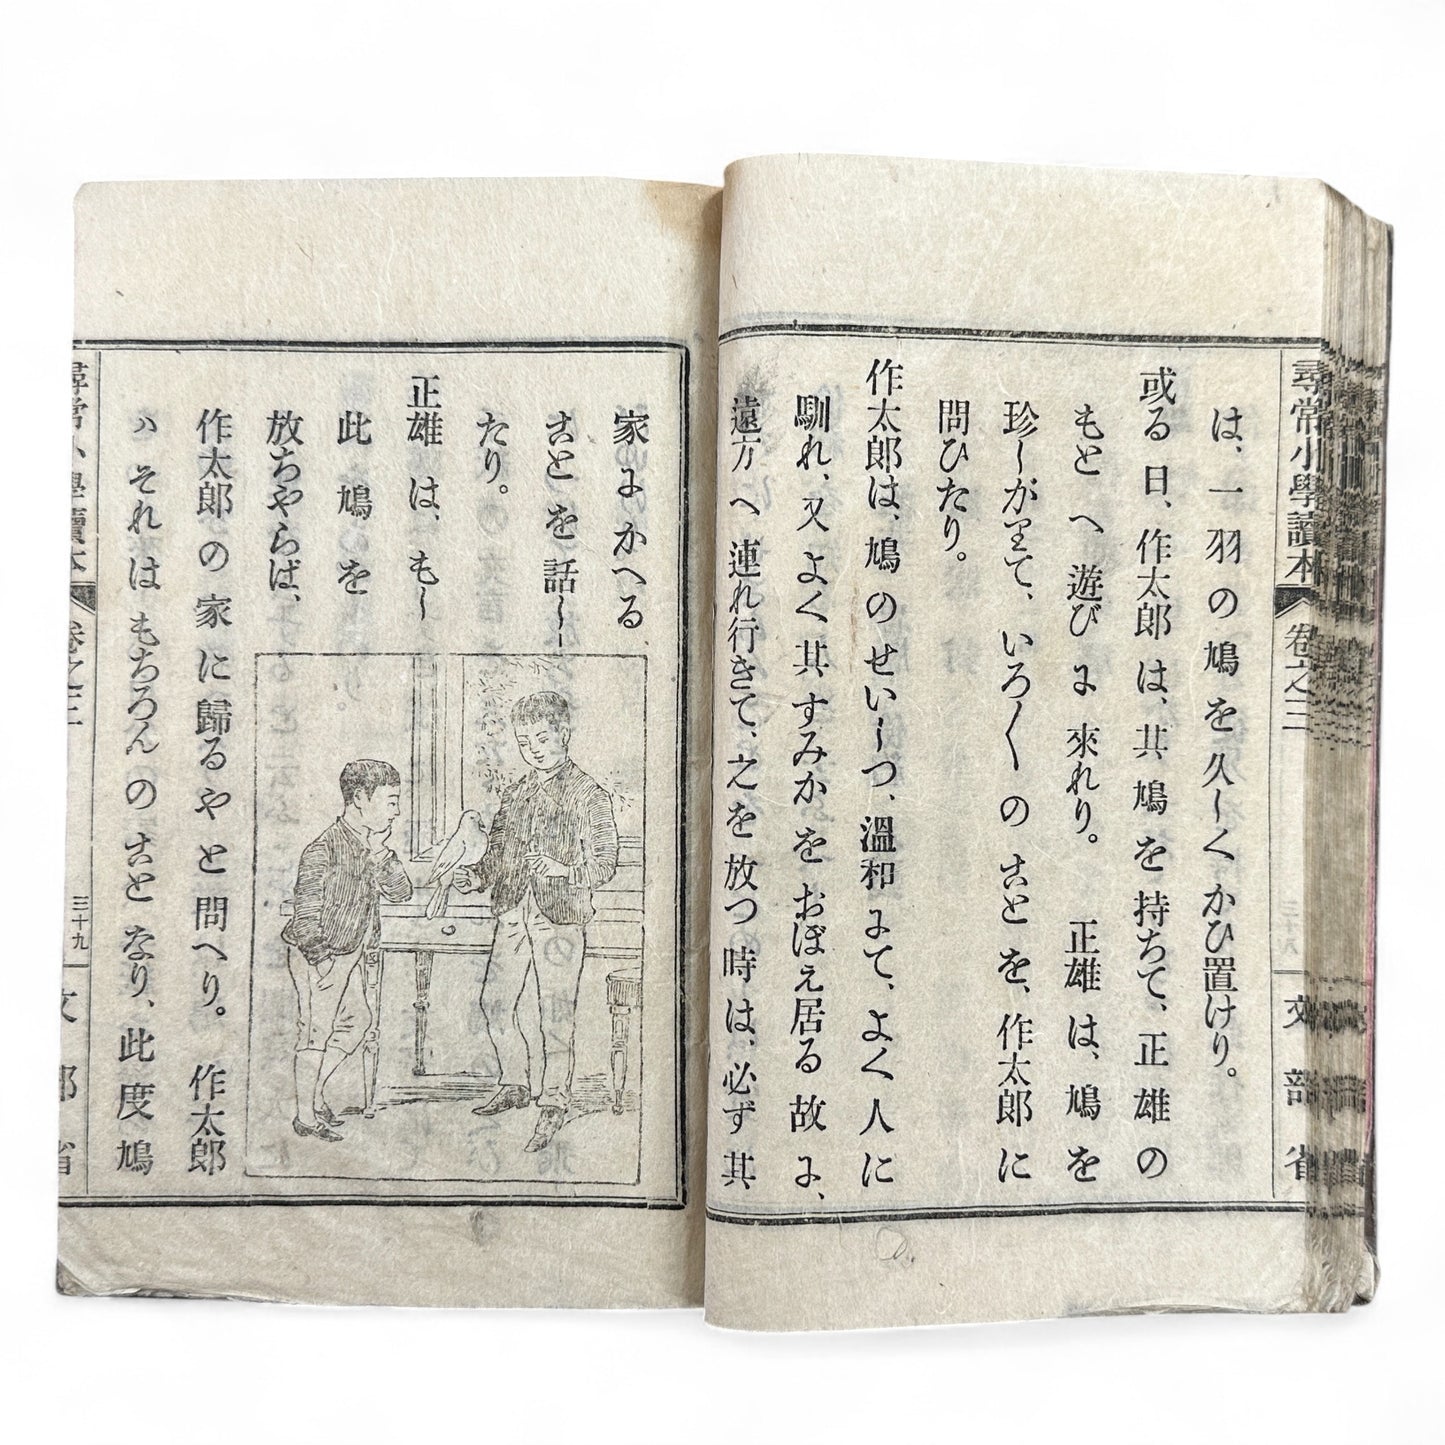 尋常小學讀本 卷之三 三十八 文部省
は、一羽の鳩を久しくかひ置けり。
或る日、作太郎は、其鳩を持ちて、正雄の
もとへ遊びに來れり。 正雄は、鳩を
珍しがりて、いろ〱のことを、作太郎に
問ひたり。
作太郎は、鳩のせいしつ、溫和にて、よく人に
馴れ、又よく其すみかをおぼえ居る故に、
遠方へ連れ行きて、之を放つ時は、必ず其
家にかへる
ことを話し
たり。
正雄は、もし
此鳩を
放ちやらば、
作太郎の家に歸るやと問へり。 作太郎
ハそれはもちろんのことなり、此度鳩
尋常小學讀本 卷之三 三十九 文部省